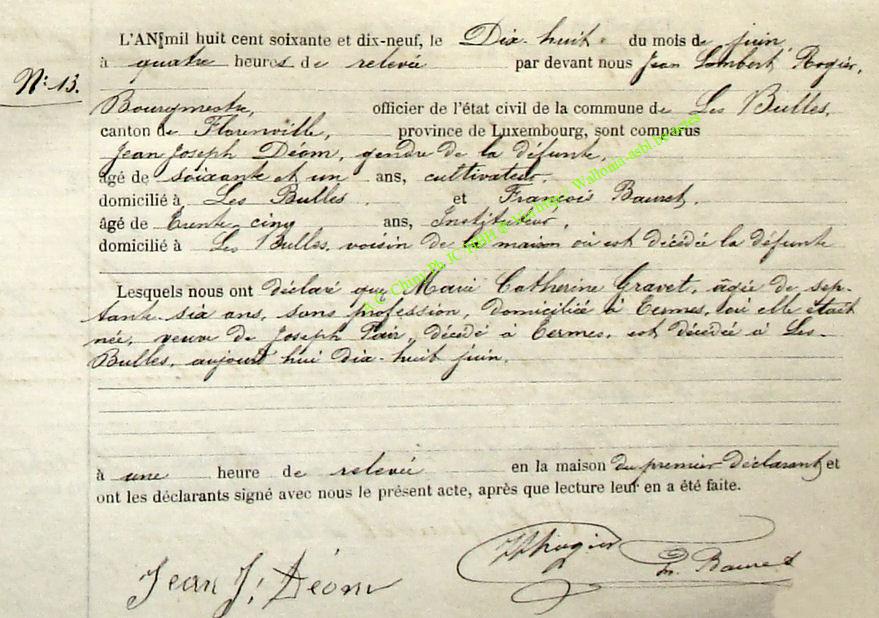 L'AN mil huit cent soixante et dix-neuf, le Dix-huit du mois de juin,
à quatre heures de relevée par devant nous Jean Lambert Rogier,
N: 13.
Bourgmestre, officier de l'état civil de la commune de Les Bulles,
canton de Florenville, province de Luxembourg, sont comparus
Jean Joseph Déom, gendre de la défunte,
âgé de soixante et un ans, cultivateur,
domicilié à Les Bulles. et François Bauret,
âgé de trente-cinq ans, Instituteur,
domicilié à Les Bulles, voisin de la maison où est décédée la défunte
Lesquels nous ont déclaré que Marie Catherine Gravet, âgée de sep-
tante-six ans, sans profession, domiciliée à Termes, où elle était
née, veuve de Joseph Pair, décédé à Termes, est décédée à Les-
Bulles, aujourd'hui dix-huit juin,
à une heure de relevée en la maison du premier déclarant et
ont les déclarants signé avec nous le présent acte, après que lecture leur en a été faite.
Jean J. Déom Rogier Bauret